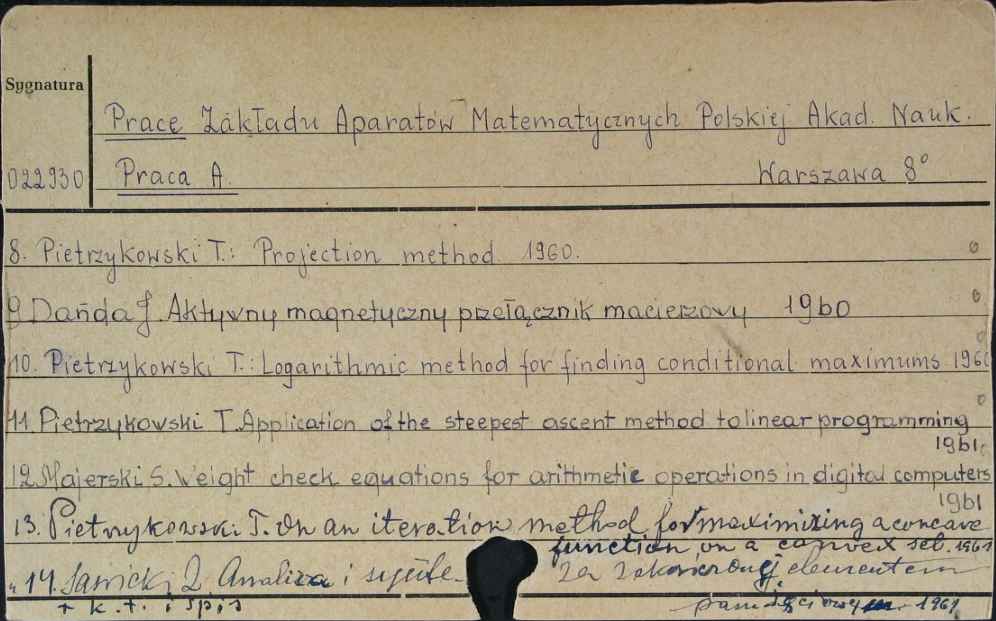 Sygnatura
Prace Zakładu Aparatów Matematycznych Polskiej Akad. Nauk.
022930 Praca A. Warszawa 8°
8. Pietrzykowski T.: Projection method 1960.
9 Dańda J. Aktywny magnetyczny przełącznik macierzowy 1960
10. Pietrzykowski T.: Logarithmic method for finding conditional maximums 1960
11. Pietrzykowski T. Application of the steepest ascent method to linear programming
1961
12. Majerski S. Weight check equations for arithmetic operations in digital computers
1961
13. Pietrzykowski T. On an iteration method for maximizing a concave
function on a convex set. 1961
14. Sawicki Z. Analiza i
elementem
+ k.t. i spis 1961